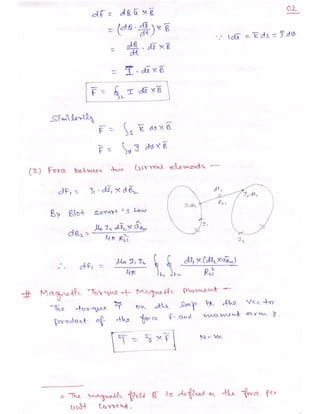 02
dF = dQ ū × B̄
= (dQ · dl̄/dt) × B̄
∵ Idl̄ = K̄ ds = J̄ dv
= dQ/dt · dl̄ × B̄
= I · dl̄ × B̄
F̄ = ∮L I dl̄ × B̄
Similarly
F̄ = ∫S K ds × B̄
F̄ = ∫V J dv × B̄
(I) Force between two current elements —
dF₁ = I₁ · dl̄₁ × dB̄₂
By Biot savart's Law
dB₂ = μ₀ I₂ dl̄₂ × âR₂₁ / 4π R₂₁²
I₁dl₁
dF₁
R₂₁
I₂ dl₂
I₁
I₂
∴ dF₁ = μ₀ I₁ I₂ / 4π ∮L₁ ∮L₂ dl₁ × (dl₂ × aR₂₁) / R₂₁²
# Magnetic Torque & Magnetic Moment —
The torque T̄ on the loop is the vector
product of the force F and moment arm r.
T̄ = r̄ × F̄ N-m
= The magnetic field B is defined as the force per
unit current.